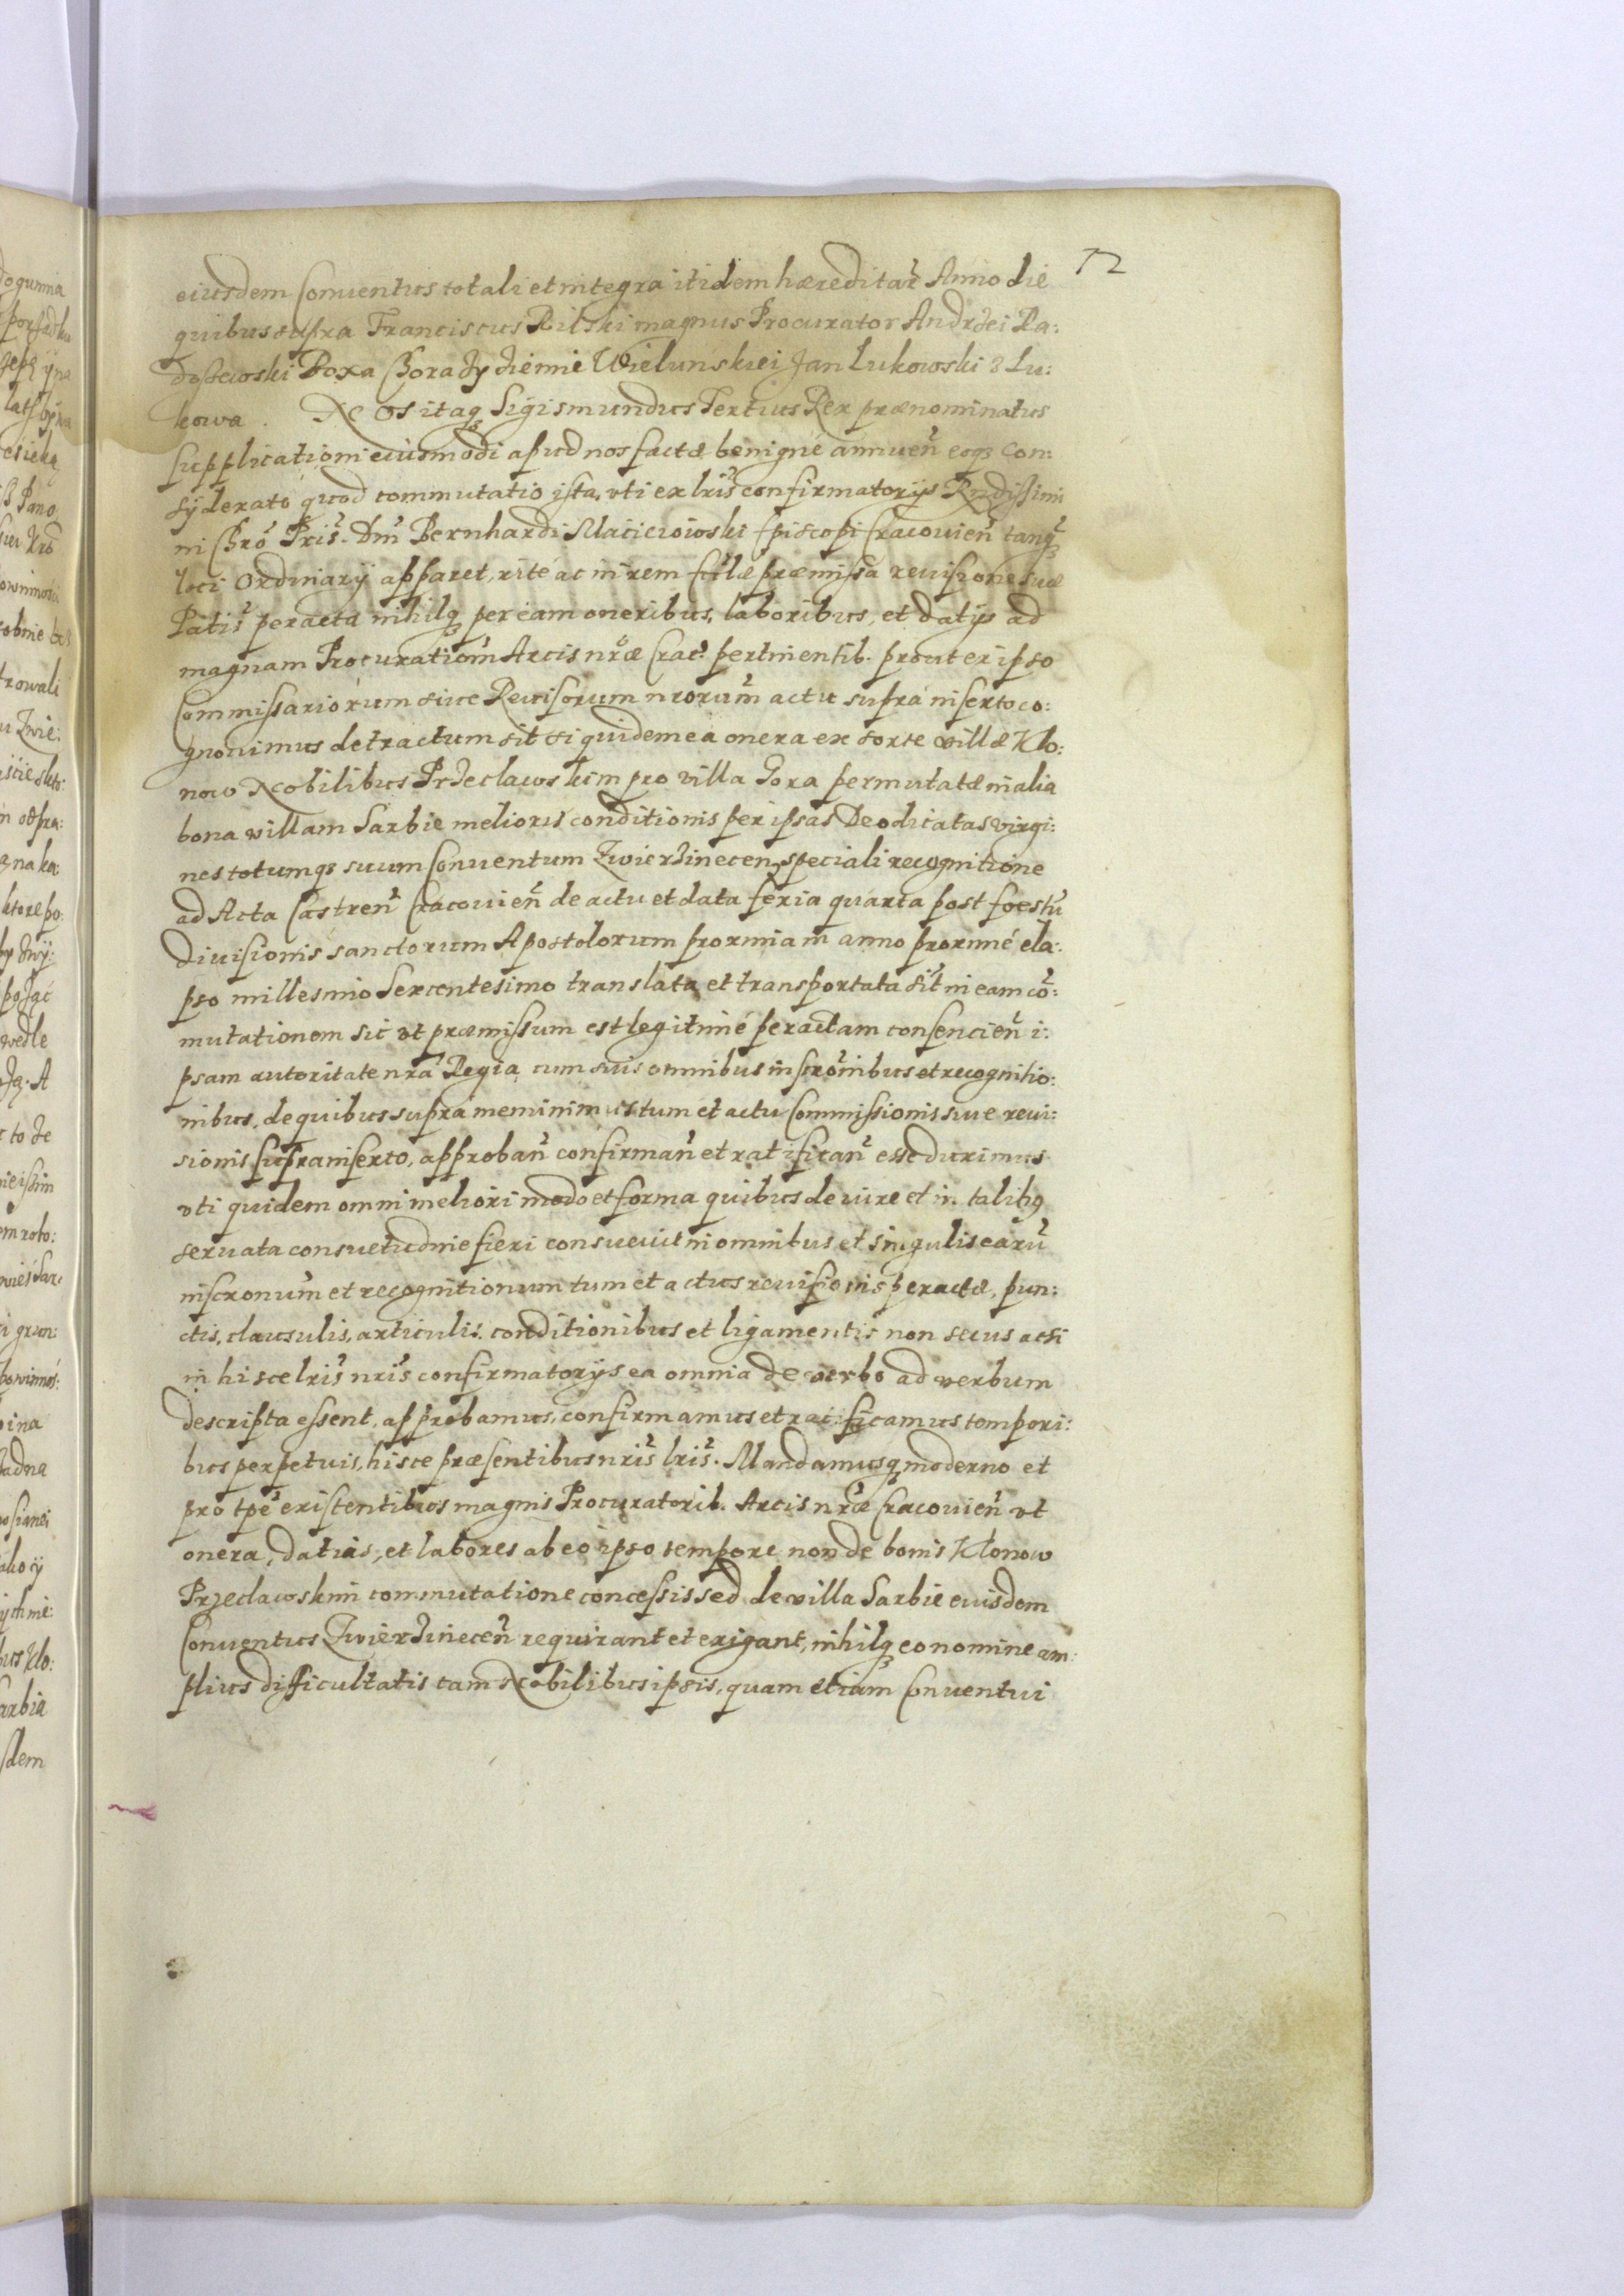 72
eiusdem Conuentus totali et integra itidem hæreditar̃ Anno die
quibus supra Franciscus Rilski magnus Procurator Andrzei Ra:
doszewski Boxa Chorąży Ziemie Wieluńskiei Jan Lukowski z Lu:
kowa. Nos itaq Sigismundus Tertius Rex prænominatus
supplicationi eiusmodi apud nos factæ benigné annuen̄ eoq; Con:
syderato quod commutatio ista, vti ex lris̃ confirmatorijs Rndissimi
ni Chro Pris̃. Dni Bernhardi Macieiowski Episcopi Cracouien̄ tanq̃
loci Ordinarij apparet, rité ac in rem Ecclæ præmissa reuisione suæ
Ptatis̃ peracta nihilq; per eam oneribus, laboribus, et datijs ad
magnam Procurationem Arcis nræ Crac. pertinentib. prout ex ipso
Commissariorum siue Reuisorum nrorum actu supra inserto co:
gnouimus detractum sit siquidem ea onera ex sorte villæ Klo:
now Nobilibus Przeclawskim pro villa Gora permutatæ in alia
bona villam Sarbie melioris conditionis per ipsas Deo dicatas virgi:
nes totumq; suum Conuentum Zwierzinecen̄ speciali recognitione
ad Acta Castren̄ Cracouien̄ de actu et data feria quarta post foestū
Diuisionis sanctorum Apostolorum proximam anno proximé ela:
pso millesimo Sexcentesimo translata et transportata sit in eam cō:
mutationem sic vt præmissum est legitimé peractam consencien̄ i:
psam autoritate nrã Regia cum suis omnibus inscrōnibus et recognitio:
nibus, de quibus supra meminimus tum et actu Commissionis siue reui:
sionis supra inserto, approban̄ confirman̄ et ratifican̄ esse duximus
vti quidem omni meliori modo et forma quibus de iure et in talibq
seruata consuetudine fieri consueuit in omnibus et singulis earū
inscronum et recognitionum tum et actus reuisionis peractæ, pun:
ctis, clausulis, articulis, conditionibus et ligamentis non secus ac si
in hisce lris̃ nris̃ confirmatorijs ea omnia de verbo ad verbum
descripta essent, approbamus, confirmamus et ratificamus tempori:
bus perpetuis, hisce præsentibus nris̃ lris̃. Mandamusq; moderno et
pro tpe existentibus magnis Procuratorib. Arcis nræ Cracouien̄ vt
onera, datias, et labores ab eo ipso tempore non de bonis Klonow
Przeclawskim commutatione concessis sed de villa Sarbie eiusdem
Conuentus Zwierzinecen̄ requirant et exigant, nihilq; eo nomine am:
plius difficultatis tam Nobilibus ipsis, quam etiam Conuentui